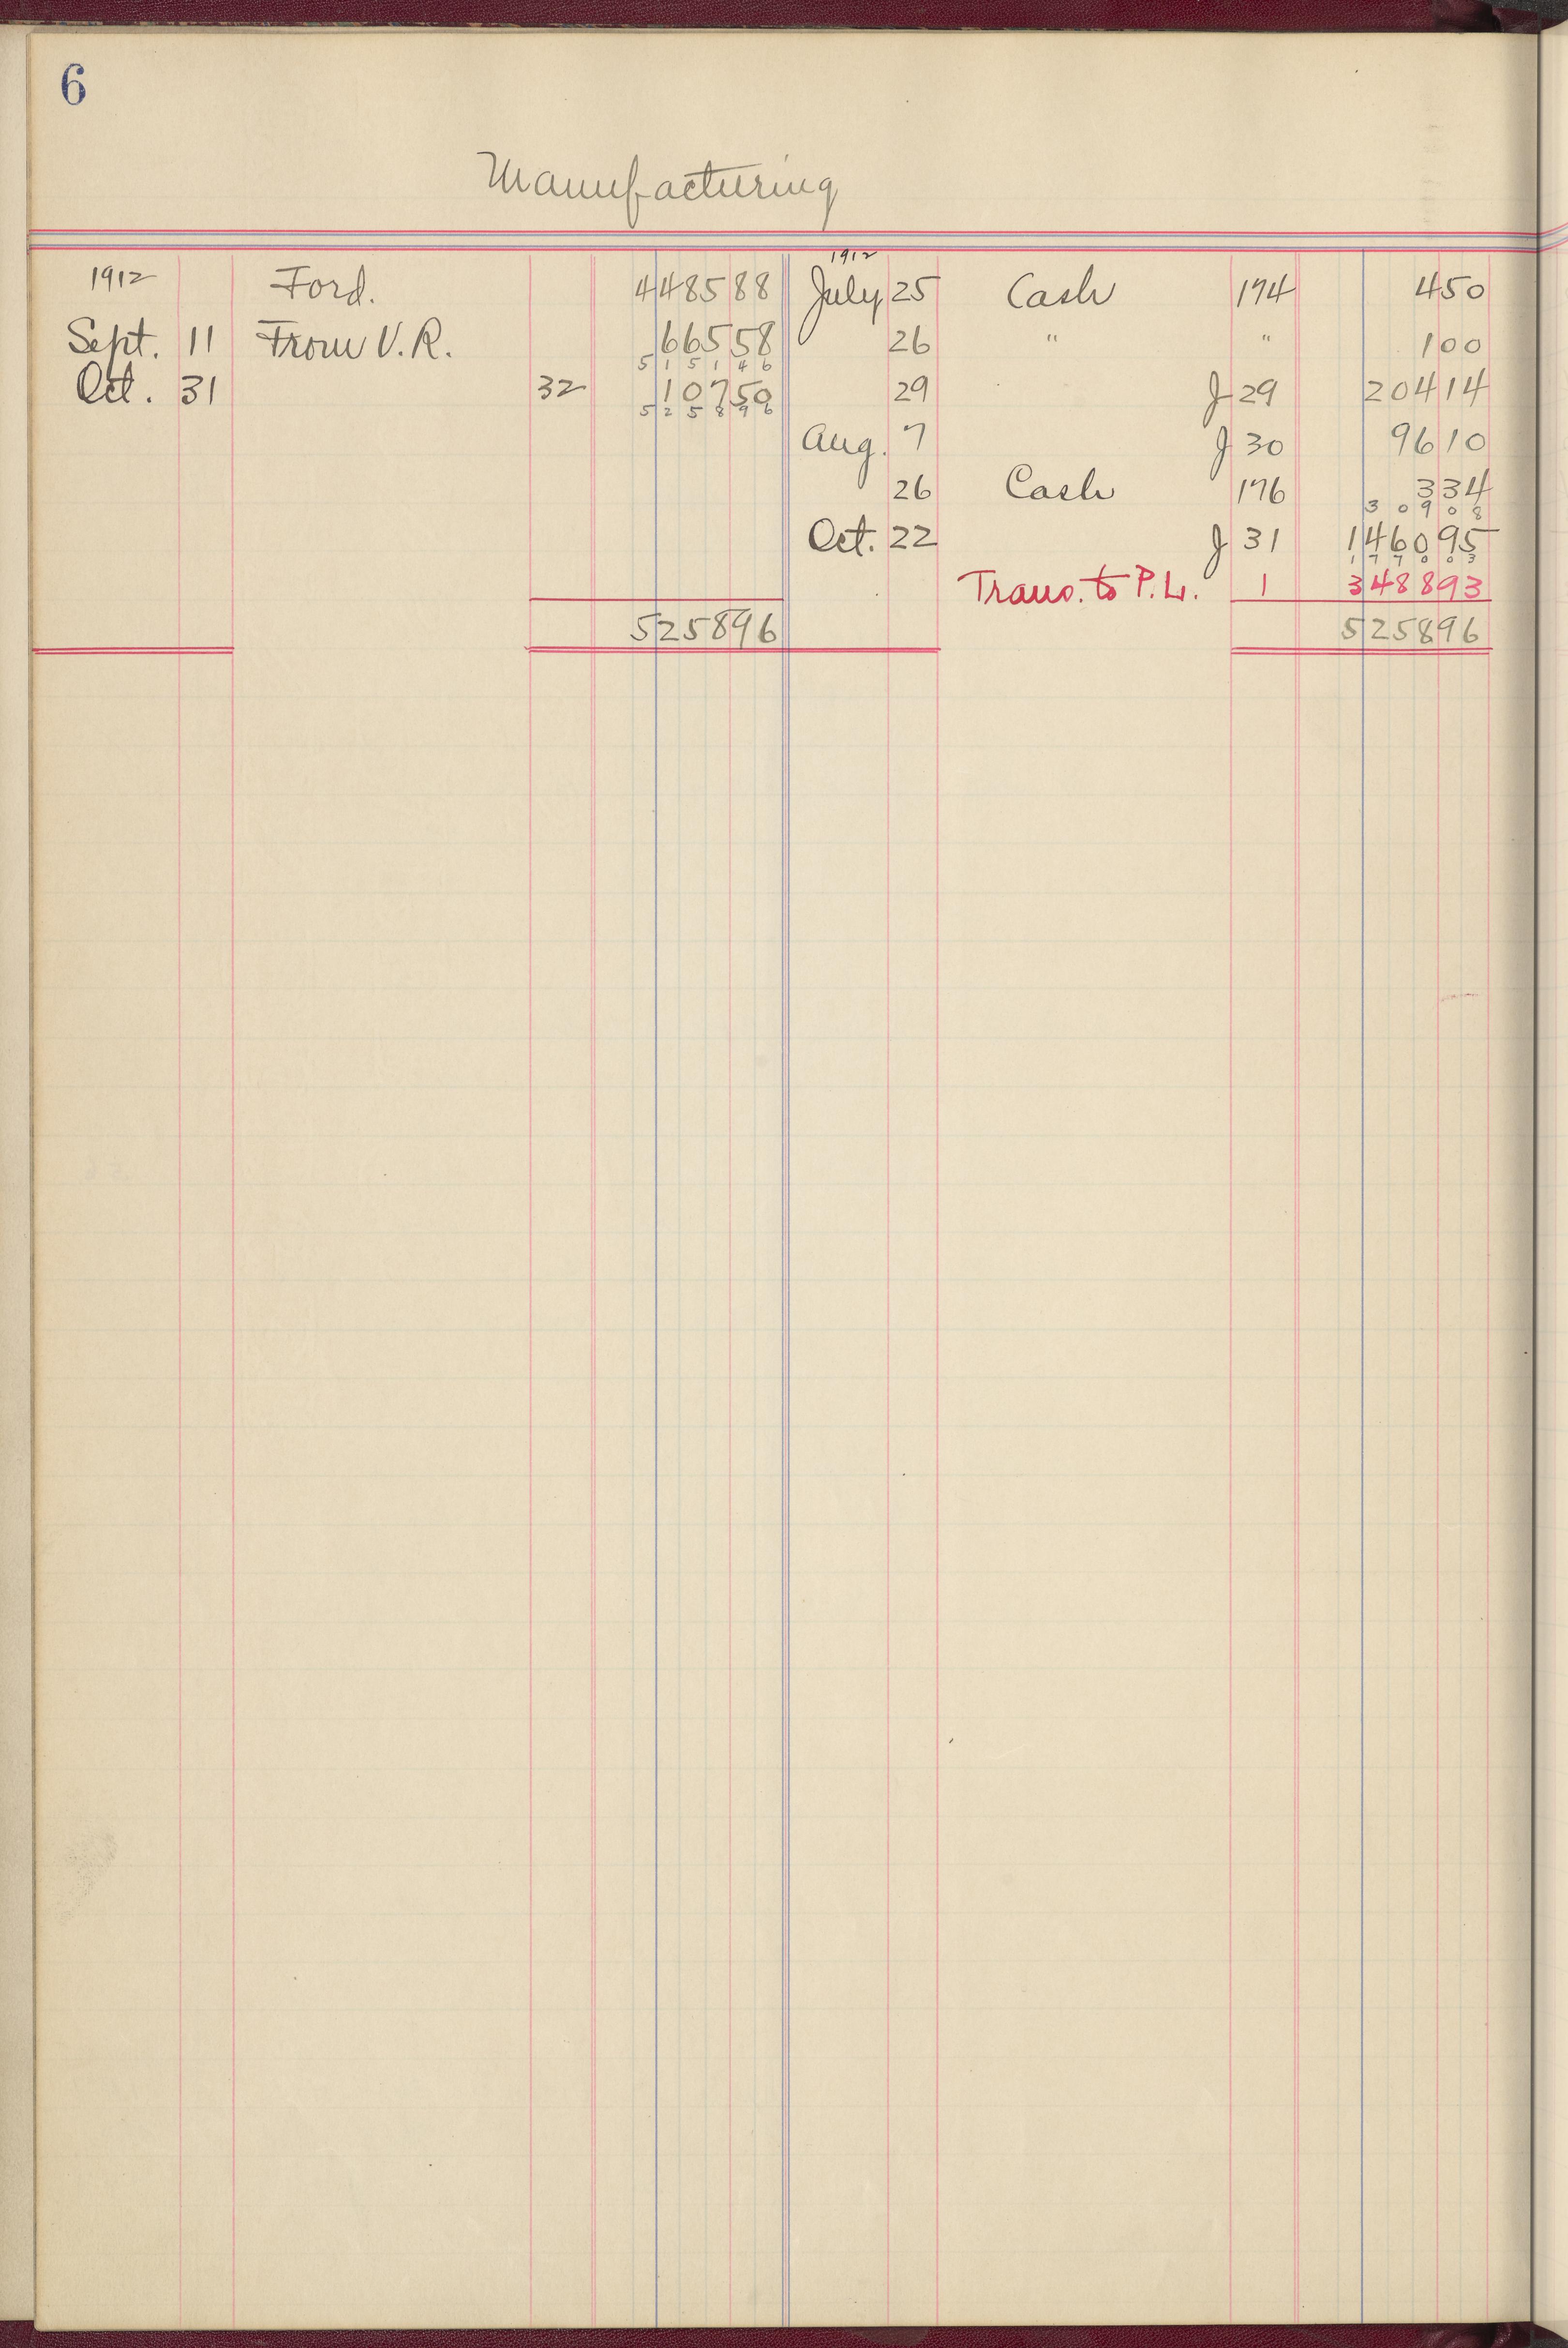 6
Manufacturing
1912 Ford. 448588 1912 July 25 Cash 174 450
Sept. 11 From V. R. 66558 26 " " 100
515146
Oct. 31 32 10750 29 J 29 20414
525896
Aug. 7 J 30 9610
26 Cash 176 334
30908
Oct. 22 J 31 146095
177003
Trans. to P. L. 1 348893
525896 525896